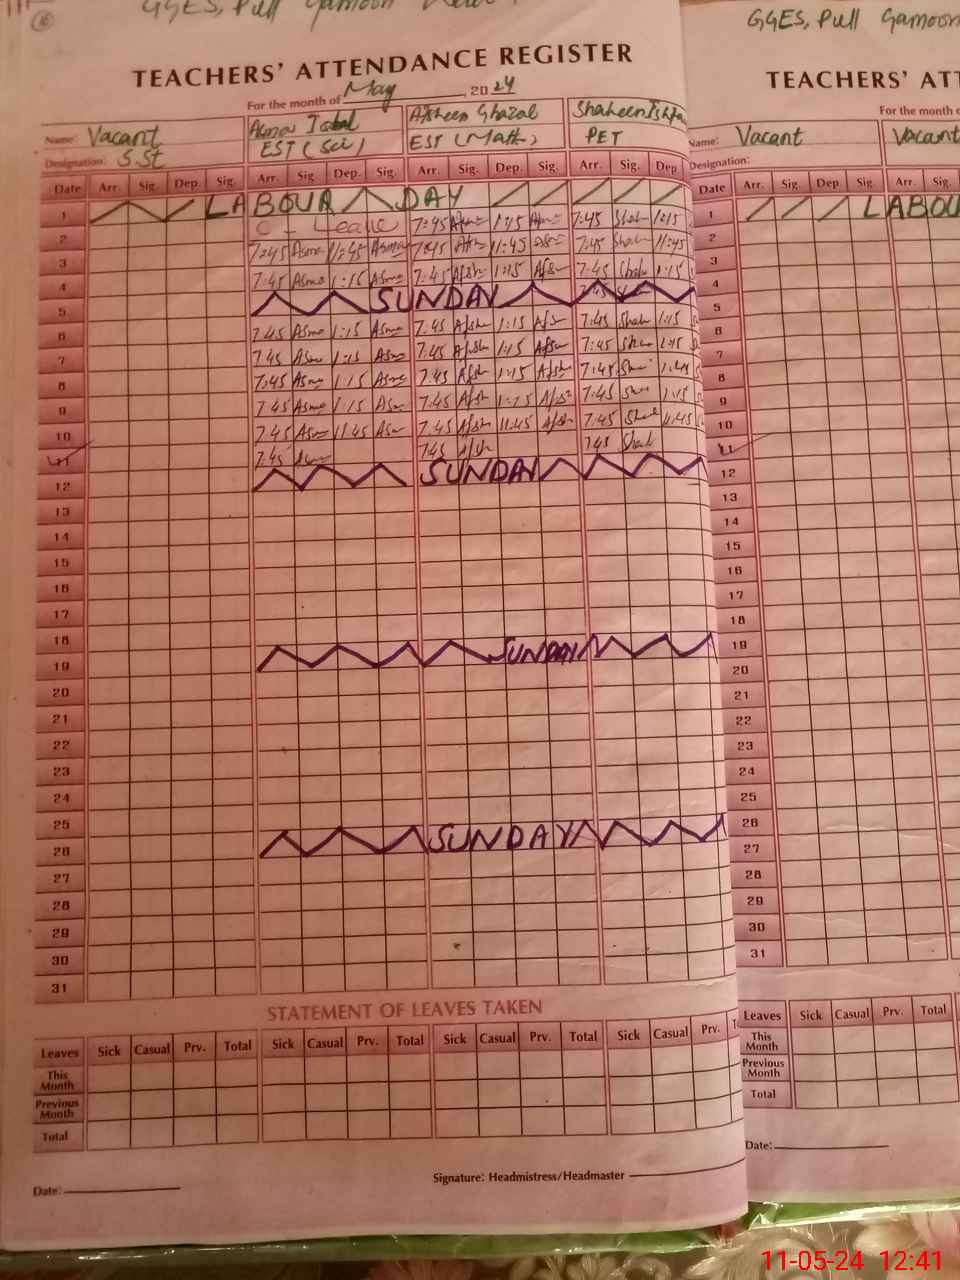 GGES, Pull Gamoon
TEACHERS' ATTENDANCE REGISTER
For the month of May, 2024
Name: Vacant Asma Iqbal Afsheen Ghazal Shaheen
Designation: S.St EST (Sci) EST (Math) PET
Date Arr. Sig. Dep. Sig. Arr. Sig. Dep. Sig. Arr. Sig. Dep. Sig. Arr. Sig. Dep
1 LABOUR DAY
2 C - Leave 7:45 1:15 7:45 Shah 1:15
3 7:45 Asma 11:45 Asma 7:45 Afsh 11:45 7:45 Shah 11:45
4 7:45 Asma 1:15 Asma 7:45 Afsh 1:15 Afsh 7:45 Shah 1:15
5 SUNDAY
6 7:45 Asma 1:15 Asma 7:45 Afsh 1:15 Afsh 7:45 Shah 1:15
7 7:45 Asma 1:15 Asma 7:45 Afsh 1:15 Afsh 7:45 Shah 1:15
8 7:45 Asma 1:15 Asma 7:45 Afsh 1:15 Afsh 7:45
9 7:45 Asma 1:15 Asma 7:45 Afsh 1:15 Afsh 7:45 1:15
10 7:45 Asma 11:45 Asma 7:45 Afsh 11:45 Afsh 7:45 Shah 11:45
11 7:45 Asma 7:45 Afsh 7:45 Shah
12 SUNDAY
13
14
15
16
17
18
19 SUNDAY
20
21
22
23
24
25
26 SUNDAY
27
28
29
30
31
STATEMENT OF LEAVES TAKEN
Leaves Sick Casual Prv. Total Sick Casual Prv. Total Sick Casual Prv. Total Sick Casual Prv.
This Month
Previous Month
Total
Signature: Headmistress/Headmaster
Date:
GGES, Pull Gamoon
TEACHERS' ATT
For the month o
Name: Vacant Vacant
Designation:
Date Arr. Sig. Dep Sig. Arr. Sig.
1 LABOU
2
3
4
5
6
7
8
9
10
11
12
13
14
15
16
17
18
19
20
21
22
23
24
25
26
27
28
29
30
31
Leaves Sick Casual Prv. Total
This Month
Previous Month
Total
Date:
11-05-24 12:41